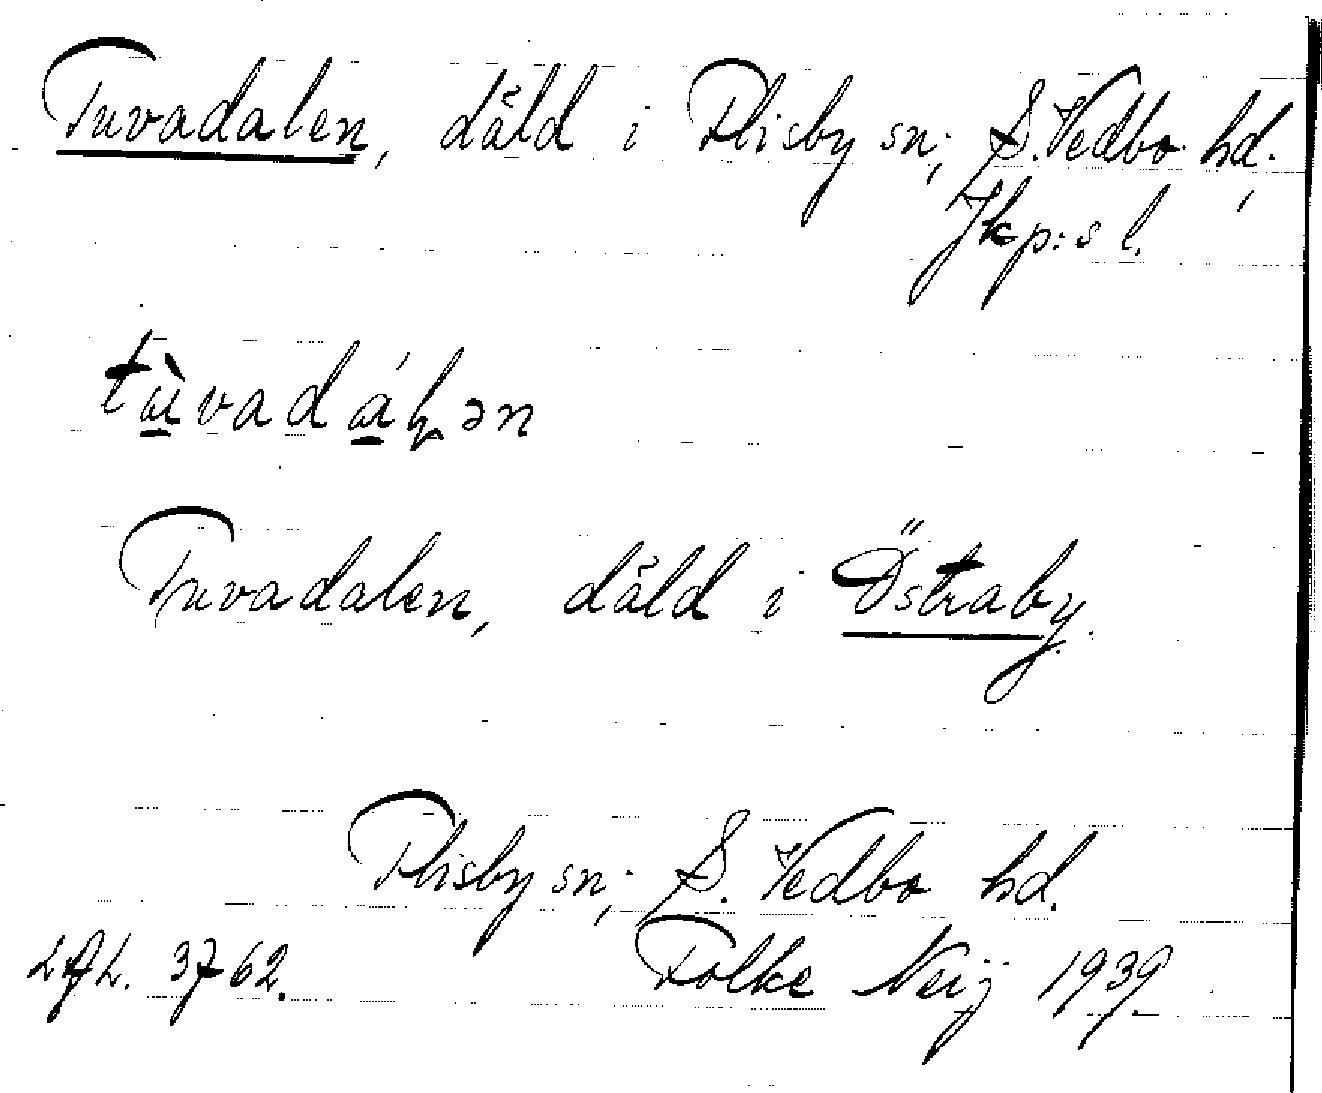 Tuvadalen, dåld i Flisby sn; S. Vedbo hd.,
Jkp:s l.
Tuvadalen, dåld i Östraby.
Flisby sn; S. Vedbo hd.
3762. Folke Neij 1939.